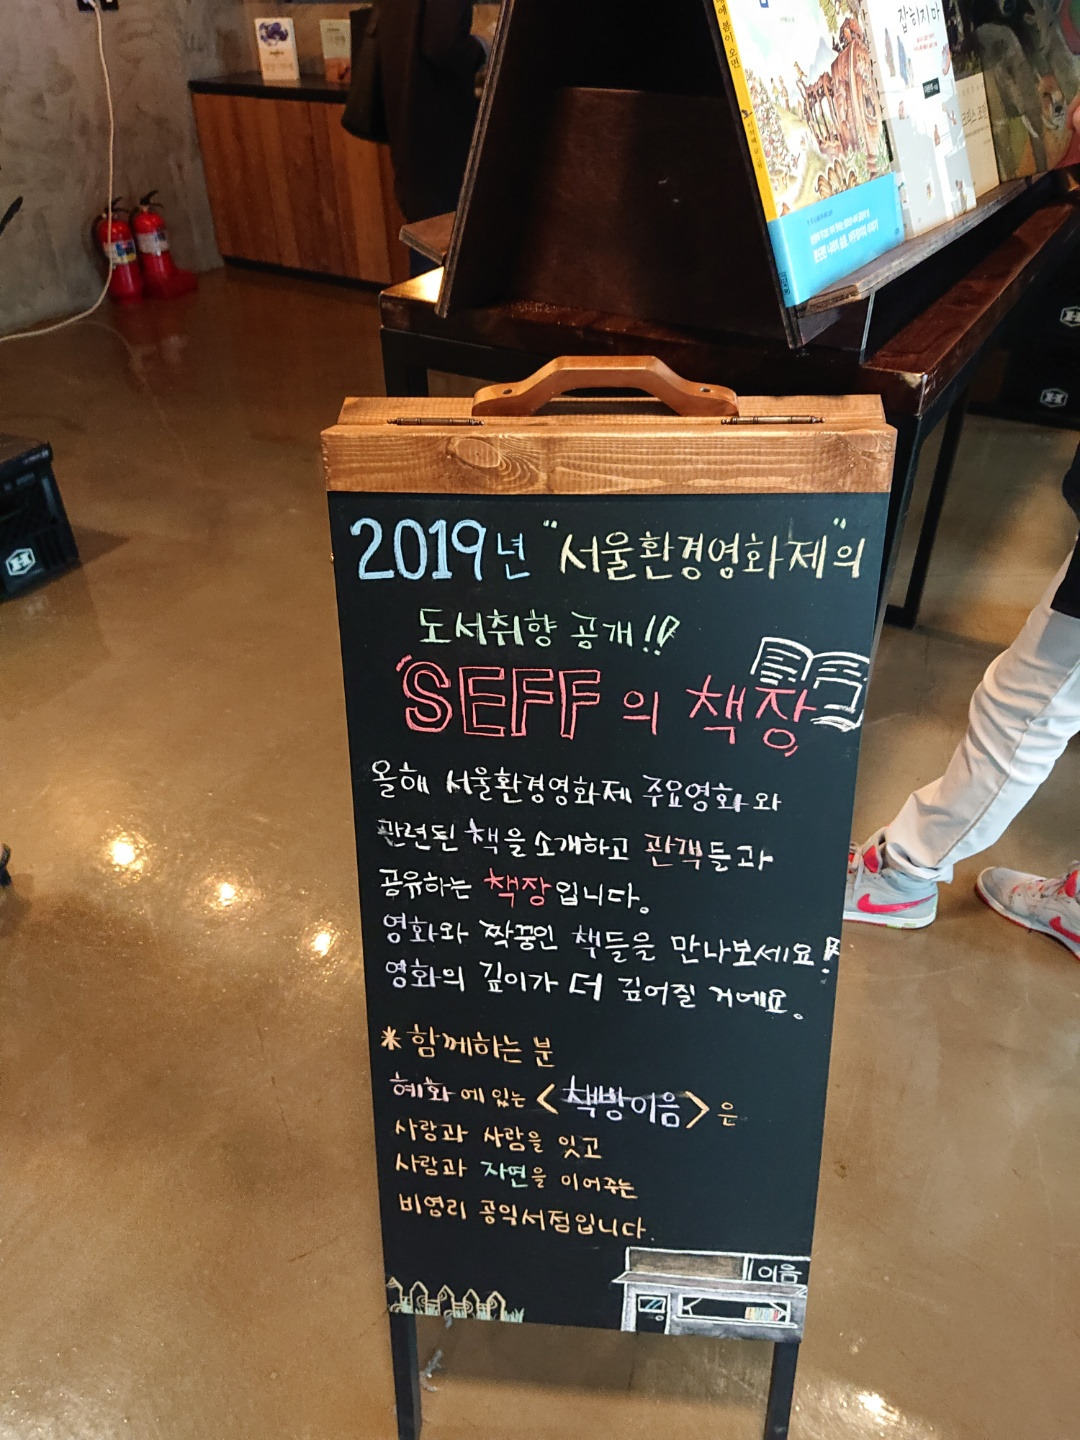 잡히지 마
2019년 "서울환경영화제"의
도서취향 공개!!
SEFF의 책장
올해 서울환경영화제 주요영화와
관련된 책을 소개하고 관객들과
공유하는 책장입니다.
영화와 짝꿍인 책들을 만나보세요!
영화의 깊이가 더 깊어질 거예요.
* 함께하는 분
혜화에 있는 <책방이음>은
사람과 사람을 잇고
사람과 자연을 이어주는
비영리 공익서점입니다.
이음